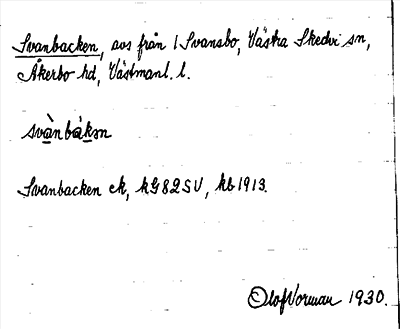 Svanbacken, avs från 1 Svansbo, Västra Skedvi sn,
Åkerbo hd, Västmanl. l.
svànbàkən
Svanbacken ek, kG82SV, kb 1913.
Olof Norman 1930.